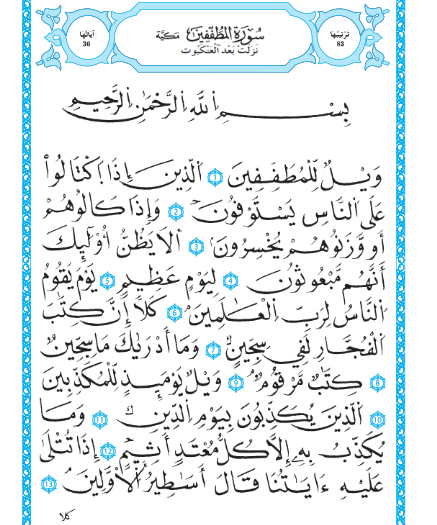 ترتيبها
83
سُورَةُ المُطَفِّفِينَ مَكِّيَّة
نَزَلَتْ بَعْدَ الْعَنكَبُوت
آياتها
36
بِسْمِ اِ۬للَّهِ اِ۬لرَّحْمَٰنِ اِ۬لرَّحِيمِ
وَيْلٌ لِّلْمُطَفِّفِينَ 1 اَ۬لذِينَ إِذَا اَ۪كْتَالُواْ
عَلَى اَ۬لنَّاسِ يَسْتَوْفُونَ 2 وَإِذَا كَالُوهُمْ
أَو وَّزَنُوهُمْ يُخْسِرُونَ 3 أَلَا يَظُنُّ أُوْلَٰٓئِكَ
أَنَّهُم مَّبْعُوثُونَ 4 لِيَوْمٍ عَظِيمٍ 5 يَوْمَ يَقُومُ
اُ۬لنَّاسُ لِرَبِّ اِ۬لْعَٰلَمِينَ 6 كَلَّآ إِنَّ كِتَٰبَ
اَ۬لْفُجّ۪ارِ لَفِي سِجِّينٍ 7 وَمَآ أَدْر۪ىٰكَ مَا سِجِّينٌ
8 كِتَٰبٌ مَّرْقُومٌ 9 وَيْلٌ يَوْمَئِذٍ لِّلْمُكَذِّبِينَ
10 اَ۬لذِينَ يُكَذِّبُونَ بِيَوْمِ اِ۬لدِّينِ 11 وَمَا
يُكَذِّبُ بِهِۦٓ إِلَّا كُلُّ مُعْتَدٍ أَثِيمٍ 12 إِذَا تُتْلَىٰ
عَلَيْهِ ءَايَٰتُنَا قَالَ أَسَٰطِيرُ اُ۬لَاوَّلِينَ 13
كلا